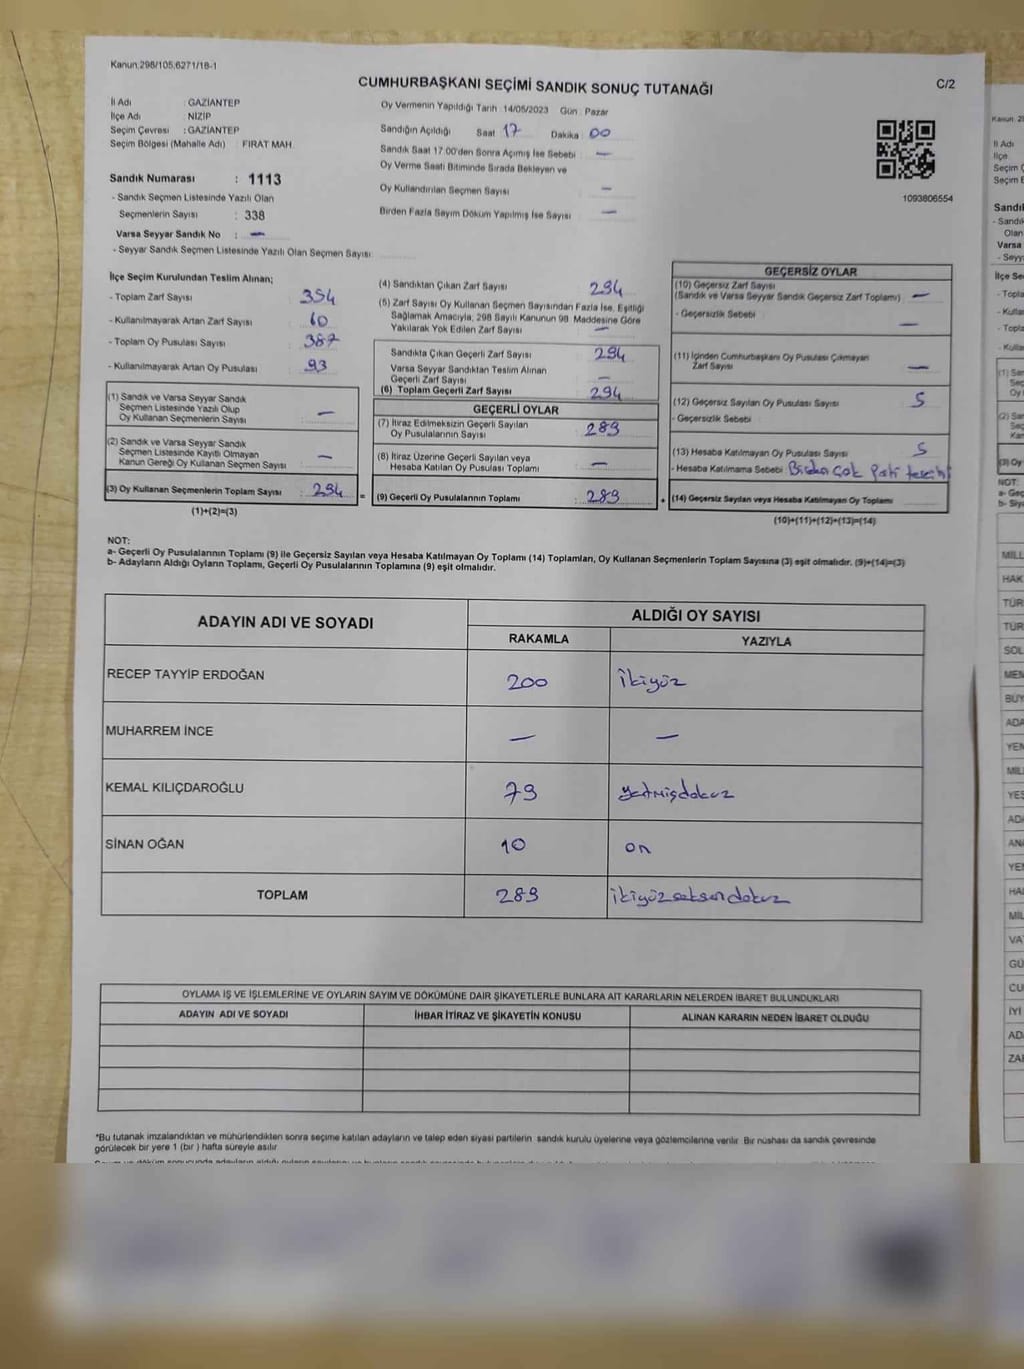 Kanun:298/105,6271/18-1
CUMHURBAŞKANI SEÇİMİ SANDIK SONUÇ TUTANAĞI
C/2
İl Adı : GAZİANTEP
İlçe Adı : NİZİP
Seçim Çevresi : GAZİANTEP
Seçim Bölgesi (Mahalle Adı) FIRAT MAH.
Sandık Numarası : 1113
- Sandık Seçmen Listesinde Yazılı Olan
Seçmenlerin Sayısı : 338
Varsa Seyyar Sandık No : —
- Seyyar Sandık Seçmen Listesinde Yazılı Olan Seçmen Sayısı:
Oy Vermenin Yapıldığı Tarih : 14/05/2023 Gün : Pazar
Sandığın Açıldığı Saat 17 Dakika 00
Sandık Saat 17.00'den Sonra Açılmış İse Sebebi —
Oy Verme Saati Bitiminde Sırada Bekleyen ve
Oy Kullandırılan Seçmen Sayısı —
Birden Fazla Sayım Döküm Yapılmış İse Sayısı —
1093806554
İlçe Seçim Kurulundan Teslim Alınan;
- Toplam Zarf Sayısı 354
- Kullanılmayarak Artan Zarf Sayısı 60
- Toplam Oy Pusulası Sayısı 387
- Kullanılmayarak Artan Oy Pusulası 93
(1) Sandık ve Varsa Seyyar Sandık
Seçmen Listesinde Yazılı Olup
Oy Kullanan Seçmenlerin Sayısı —
(2) Sandık ve Varsa Seyyar Sandık
Seçmen Listesinde Kayıtlı Olmayan
Kanun Gereği Oy Kullanan Seçmen Sayısı —
(3) Oy Kullanan Seçmenlerin Toplam Sayısı 294
(1)+(2)=(3)
(4) Sandıktan Çıkan Zarf Sayısı 294
(5) Zarf Sayısı Oy Kullanan Seçmen Sayısından Fazla İse, Eşitliği
Sağlamak Amacıyla; 298 Sayılı Kanunun 98. Maddesine Göre
Yakılarak Yok Edilen Zarf Sayısı —
Sandıkta Çıkan Geçerli Zarf Sayısı 294
Varsa Seyyar Sandıktan Teslim Alınan
Geçerli Zarf Sayısı —
(6) Toplam Geçerli Zarf Sayısı 294
GEÇERLİ OYLAR
(7) İtiraz Edilmeksizin Geçerli Sayılan
Oy Pusulalarının Sayısı : 289
(8) İtiraz Üzerine Geçerli Sayılan veya
Hesaba Katılan Oy Pusulası Toplamı —
= (9) Geçerli Oy Pusulalarının Toplamı : 289
GEÇERSİZ OYLAR
(10) Geçersiz Zarf Sayısı
(Sandık ve Varsa Seyyar Sandık Geçersiz Zarf Toplamı) —
- Geçersizlik Sebebi —
(11) İçinden Cumhurbaşkanı Oy Pusulası Çıkmayan
Zarf Sayısı —
(12) Geçersiz Sayılan Oy Pusulası Sayısı 5
- Geçersizlik Sebebi
(13) Hesaba Katılmayan Oy Pusulası Sayısı 5
- Hesaba Katılmama Sebebi Birden Çok Parti tercihi
+ (14) Geçersiz Sayılan veya Hesaba Katılmayan Oy Toplamı
(10)+(11)+(12)+(13)=(14)
NOT:
a- Geçerli Oy Pusulalarının Toplamı (9) ile Geçersiz Sayılan veya Hesaba Katılmayan Oy Toplamı (14) Toplamları, Oy Kullanan Seçmenlerin Toplam Sayısına (3) eşit olmalıdır. (9)+(14)=(3)
b- Adayların Aldığı Oyların Toplamı, Geçerli Oy Pusulalarının Toplamına (9) eşit olmalıdır.
ADAYIN ADI VE SOYADI
ALDIĞI OY SAYISI
RAKAMLA YAZIYLA
RECEP TAYYİP ERDOĞAN 200 ikiyüz
MUHARREM İNCE — —
KEMAL KILIÇDAROĞLU 79 yetmişdokuz
SİNAN OĞAN 10 on
TOPLAM 289 ikiyüzseksendokuz
OYLAMA İŞ VE İŞLEMLERİNE VE OYLARIN SAYIM VE DÖKÜMÜNE DAİR ŞİKAYETLERLE BUNLARA AİT KARARLARIN NELERDEN İBARET BULUNDUKLARI
ADAYIN ADI VE SOYADI İHBAR İTİRAZ VE ŞİKAYETİN KONUSU ALINAN KARARIN NEDEN İBARET OLDUĞU
*Bu tutanak imzalandıktan ve mühürlendikten sonra seçime katılan adayların ve talep eden siyasi partilerin sandık kurulu üyelerine veya gözlemcilerine verilir. Bir nüshası da sandık çevresinde
görülecek bir yere 1 (bir) hafta süreyle asılır
Kanun: 29
İl Adı
İlçe
Seçim Ç
Seçim B
Sandı
- Sandı
Olan
Varsa
- Seyy
İlçe Se
- Topla
- Kulla
- Topla
- Kulla
NOT:
a- Geç
MİLL
HAK
TÜR
TÜR
SOL
MEM
BÜY
ADA
YEN
MİL
YES
ADA
ANA
YEN
HAL
MİL
VAT
GÜ
CU
İYİ
AD
ZAF